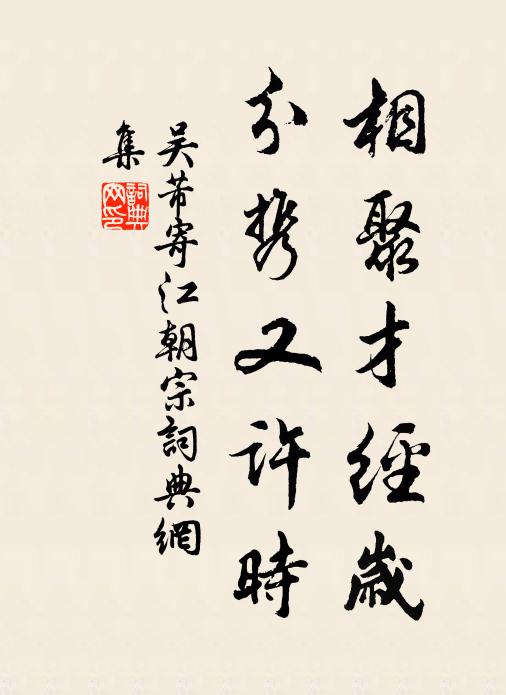 相聚才經歲
分携又许時
吴芾寄江朝宗詞典網
集
詞典
网印